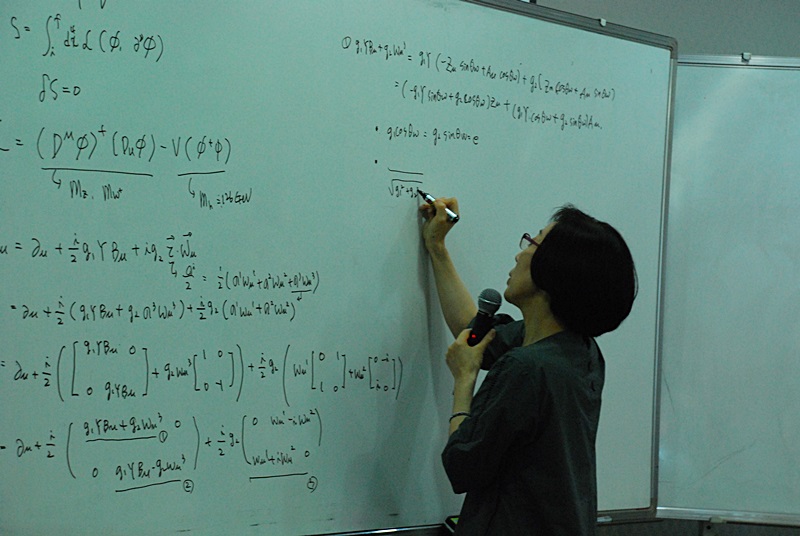 S = ∫ d⁴x ℒ (φ, ∂φ)
δS = 0
= (D^μ φ)^† (D_μ φ) - V(φ^† φ)
↳ M_Z, M_W± ↳ M_h = 126 GeV
= ∂_μ + i/2 g₁ Y B_μ + i g₂ τ⃗ · W⃗_μ
σ^i/2 = 1/2 (σ¹W_μ¹ + σ²W_μ² + σ³W_μ³)
= ∂_μ + i/2 (g₁ Y B_μ + g₂ σ³ W_μ³) + i/2 g₂ (σ¹W_μ¹ + σ²W_μ²)
= ∂_μ + i/2 ( [ g₁YB_μ 0 ; 0 g₁YB_μ ] + g₂W_μ³ [ 1 0 ; 0 -1 ] ) + i/2 g₂ ( W_μ¹ [ 0 1 ; 1 0 ] + W_μ² [ 0 -i ; i 0 ] )
= ∂_μ + i/2 ( g₁YB_μ + g₂W_μ³ 0 ① ; 0 g₁YB_μ - g₂W_μ³ ② ) + i/2 g₂ ( 0 W_μ¹ - iW_μ² ; W_μ¹ + iW_μ² 0 ) ③
① g₁YB_μ + g₂W_μ³ = g₁Y (-Z_μ sinθ_W + A_μ cosθ_W) + g₂ (Z_μ cosθ_W + A_μ sinθ_W)
= (-g₁Y sinθ_W + g₂ cosθ_W) Z_μ + (g₁Y cosθ_W + g₂ sinθ_W) A_μ
• g₁ cosθ_W = g₂ sinθ_W = e
• √g₁² + g₂